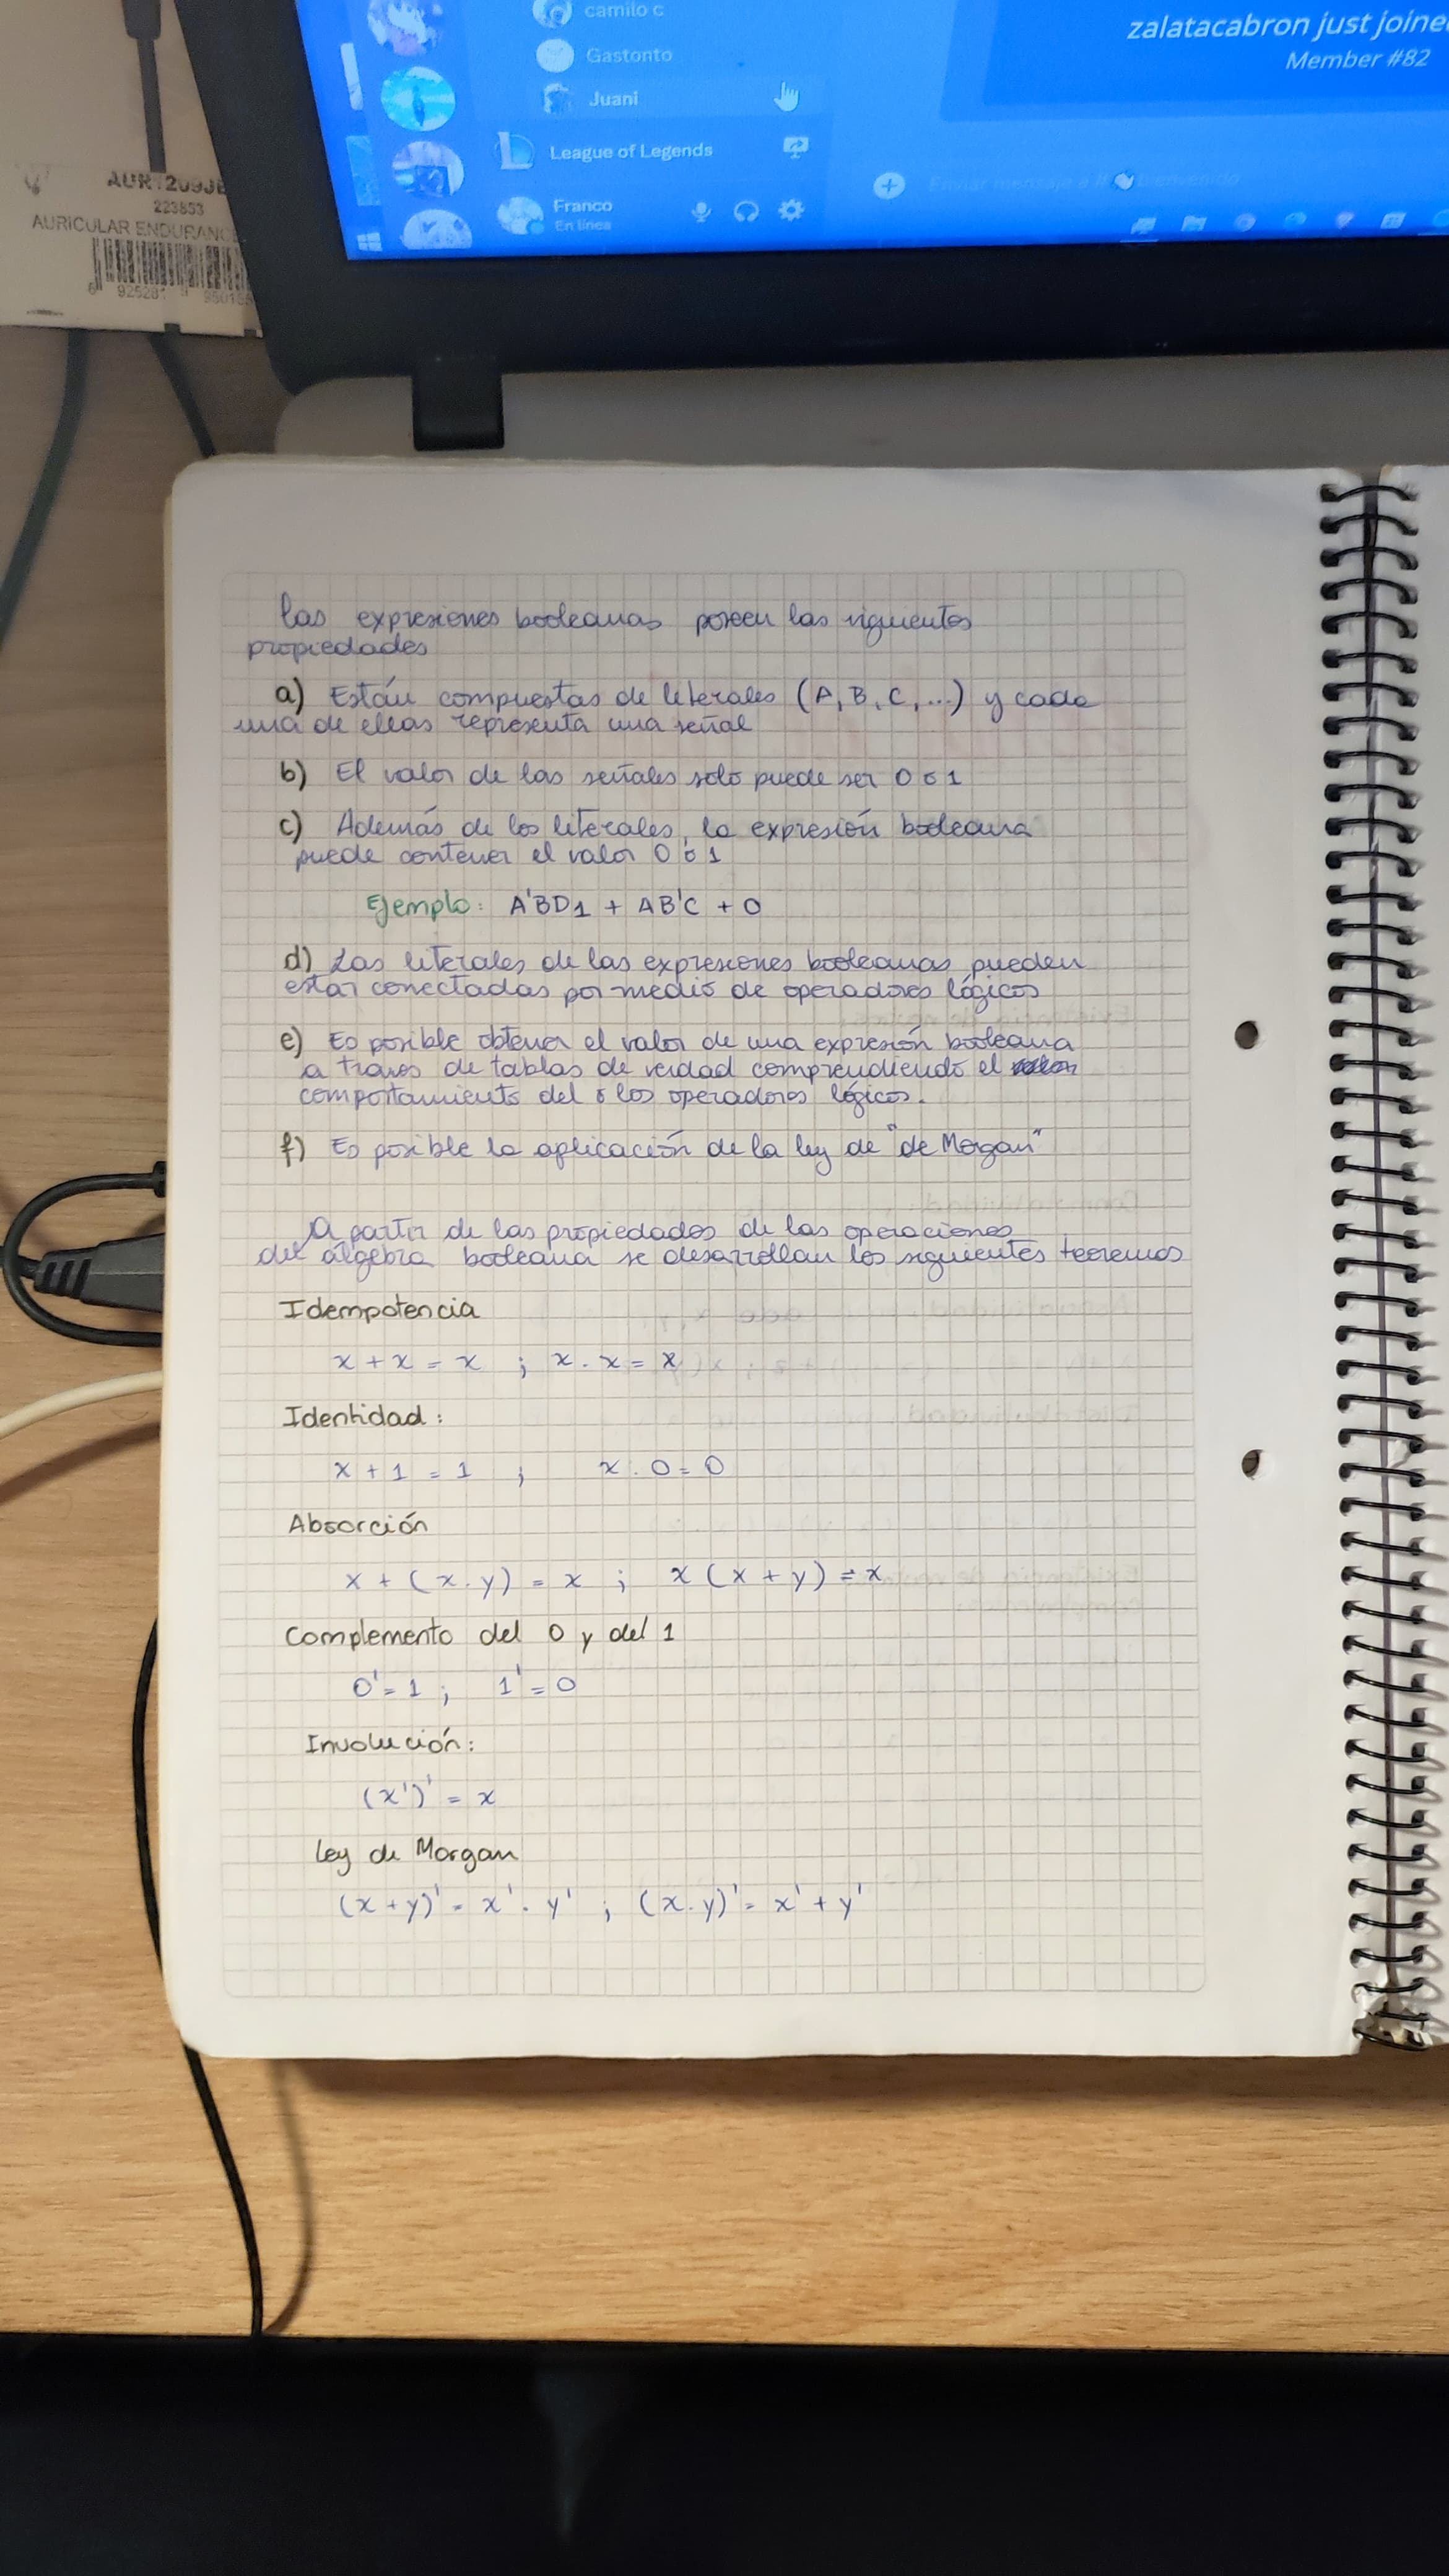 camilo c
Gastonto
Juani
League of Legends
Franco
En línea
zalatacabron just joine
Member #82
Enviar mensaje a # bienvenido
223853
AURICULAR ENDURANC
6 925281 9
Las expresiones booleanas poseen las siguientes
propiedades
a) Están compuestas de literales (A, B, C, ...) y cada
una de ellas representa una señal
b) El valor de las señales solo puede ser 0 ó 1
c) Además de los literales, la expresión booleana
puede contener el valor 0 ó 1
Ejemplo: A'BD1 + AB'C + 0
d) Las literales de las expresiones booleanas pueden
estar conectadas por medio de operadores lógicos
e) Es posible obtener el valor de una expresión booleana
a traves de tablas de verdad comprendiendo el
comportamiento del ó los operadores lógicos.
f) Es posible la aplicación de la ley de "de Morgan"
A partir de las propiedades de las operaciones
del álgebra booleana se desarrollan los siguientes teoremas
Idempotencia
x + x = x ; x . x = x
Identidad:
x + 1 = 1 ; x . 0 = 0
Absorción
x + (x . y) = x ; x (x + y) = x
Complemento del 0 y del 1
0' = 1 ; 1' = 0
Involución:
(x')' = x
Ley de Morgan
(x + y)' = x' . y' ; (x . y)' = x' + y'